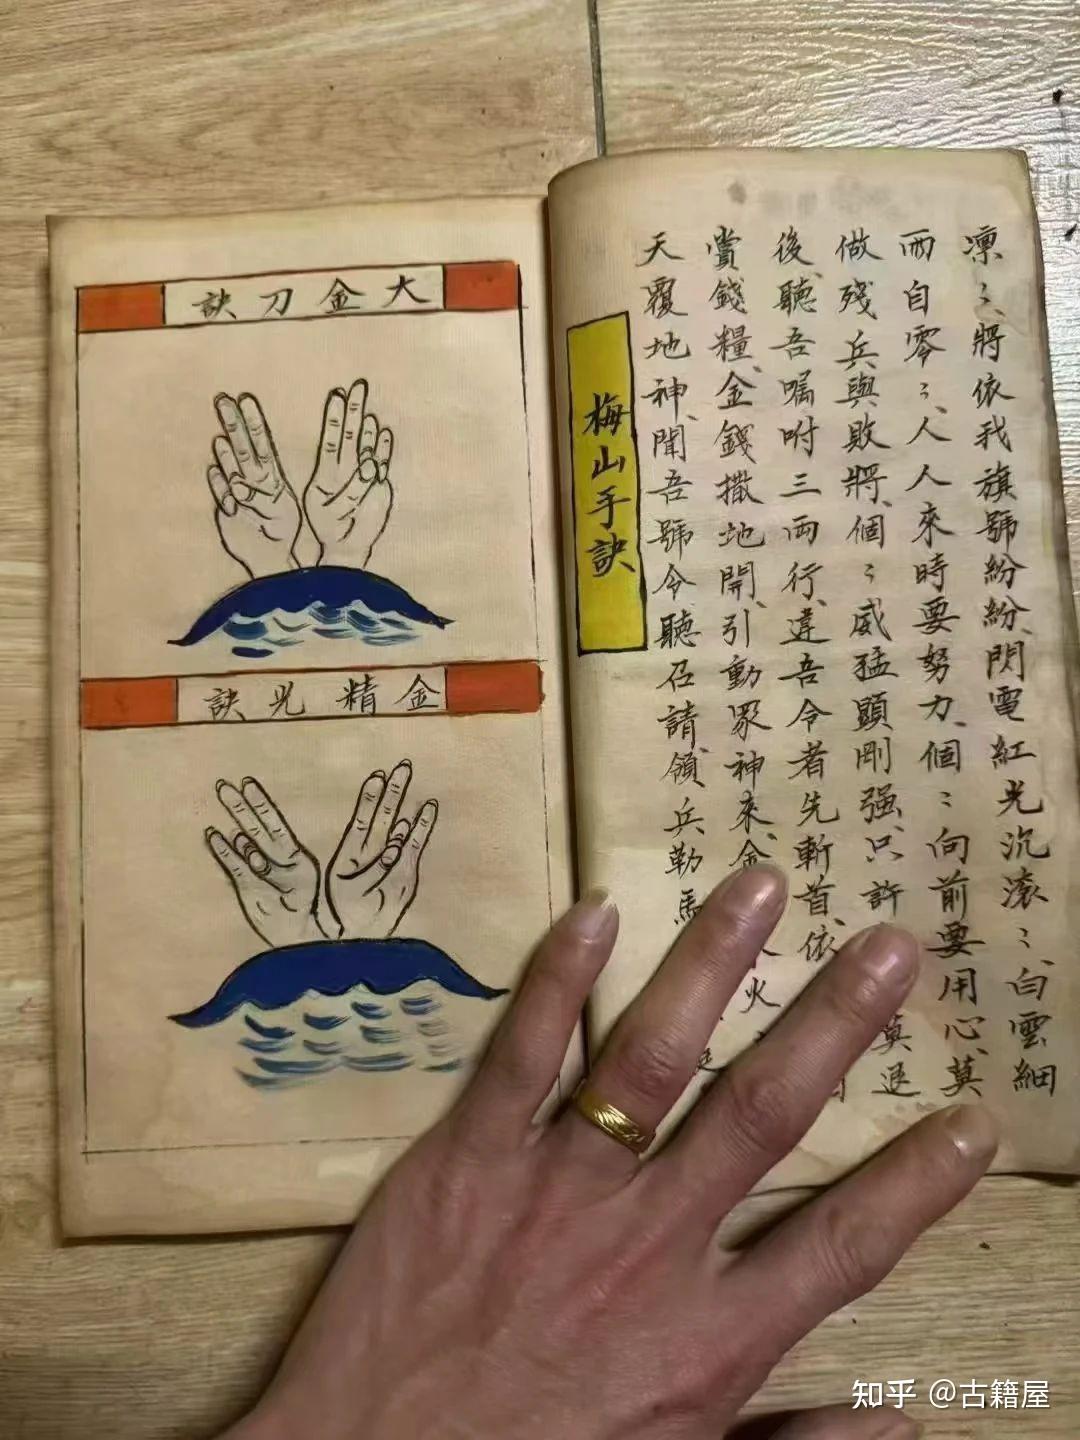 凛〻、將依我旗號紛紛、閃電紅光沉滚〻、白雲細
雨自零〻、人人來時要努力、個〻向前要用心、莫
做殘兵與敗將、個〻威猛顯剛强、只許莫退
後、聽吾囑咐三兩行、違吾令者先斬首、依
賞錢糧、金錢撒地開、引動眾神來、金火
天覆地神、聞吾號令聽召請、領兵勒馬
梅山手訣
大金刀訣
金精光訣
知乎 @古籍屋